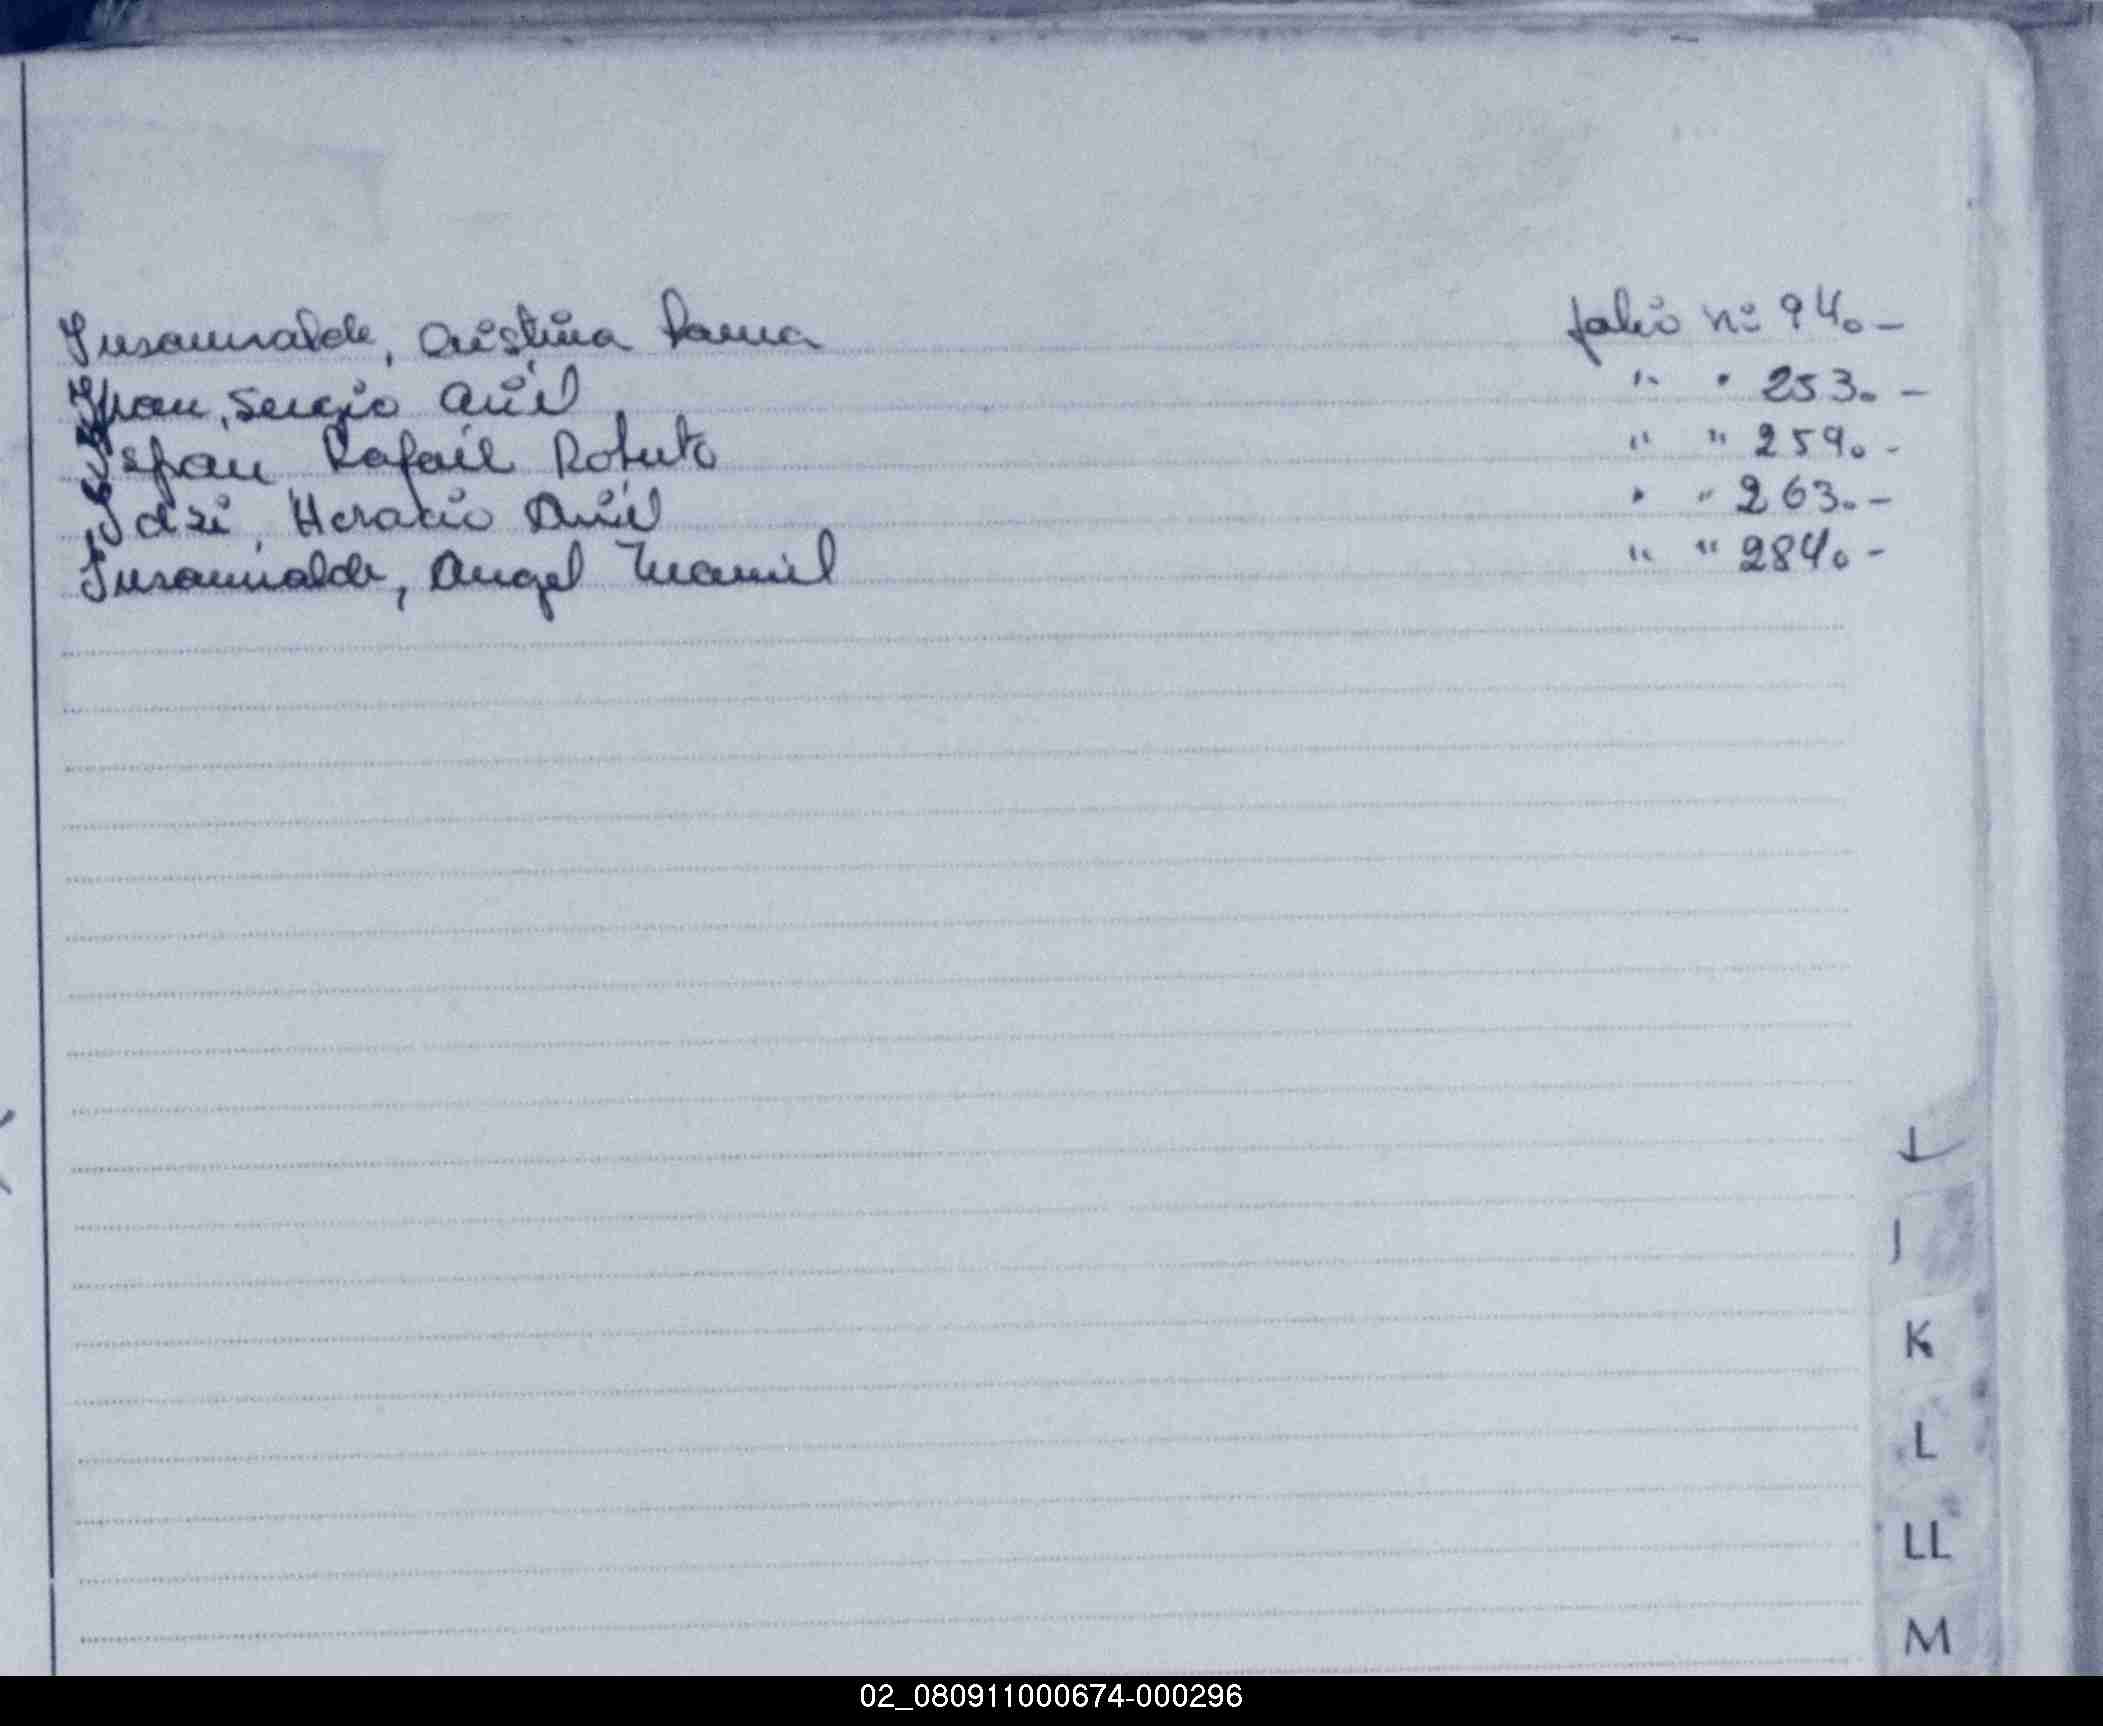 Insaurralde, Cristina Ramona folio nº 94.-
Ipran, Sergio Ariel " " 253.-
Ispan Rafael Roberto " " 259.-
Horacio Ariel " " 263.-
Insaurralde, Angel Manuel " " 284.-
I
J
K
L
LL
M
02_080911000674-000296